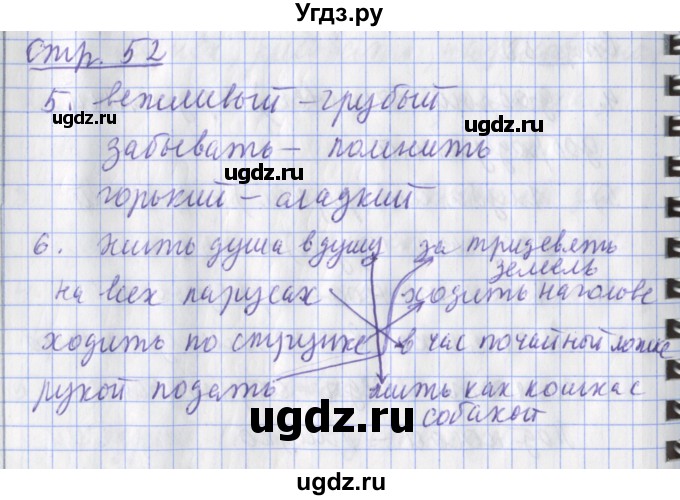 Угдз.ру
стр. 52
5. вежливый – грубый
ugdz.ru ugdz.ru
забывать – помнить
горький – сладкий
ugdz.ru
6. жить душа в душу за тридевять
земель
на всех парусах ходить на голове
ходить по струнке в час по чайной ложке
рукой подать жить как кошка с
собакой
ugdz.ru
ugdz.ru ugdz.ru